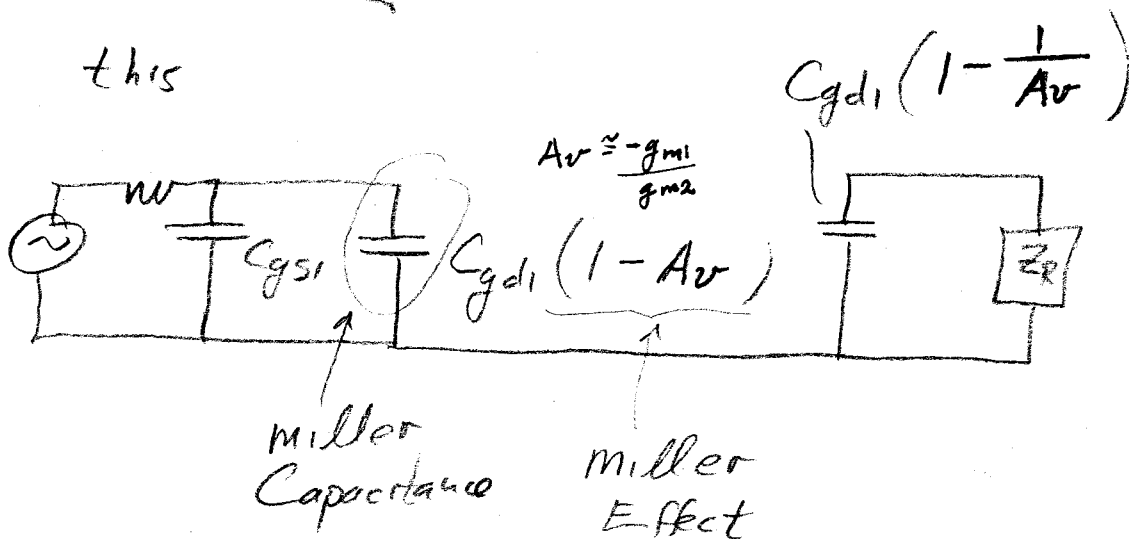 this
C_gd1 (1 - 1/Av)
Av ≅ -g_m1/g_m2
C_gs1
C_gd1 (1 - Av)
Z_R
miller
Capacitance
miller
Effect